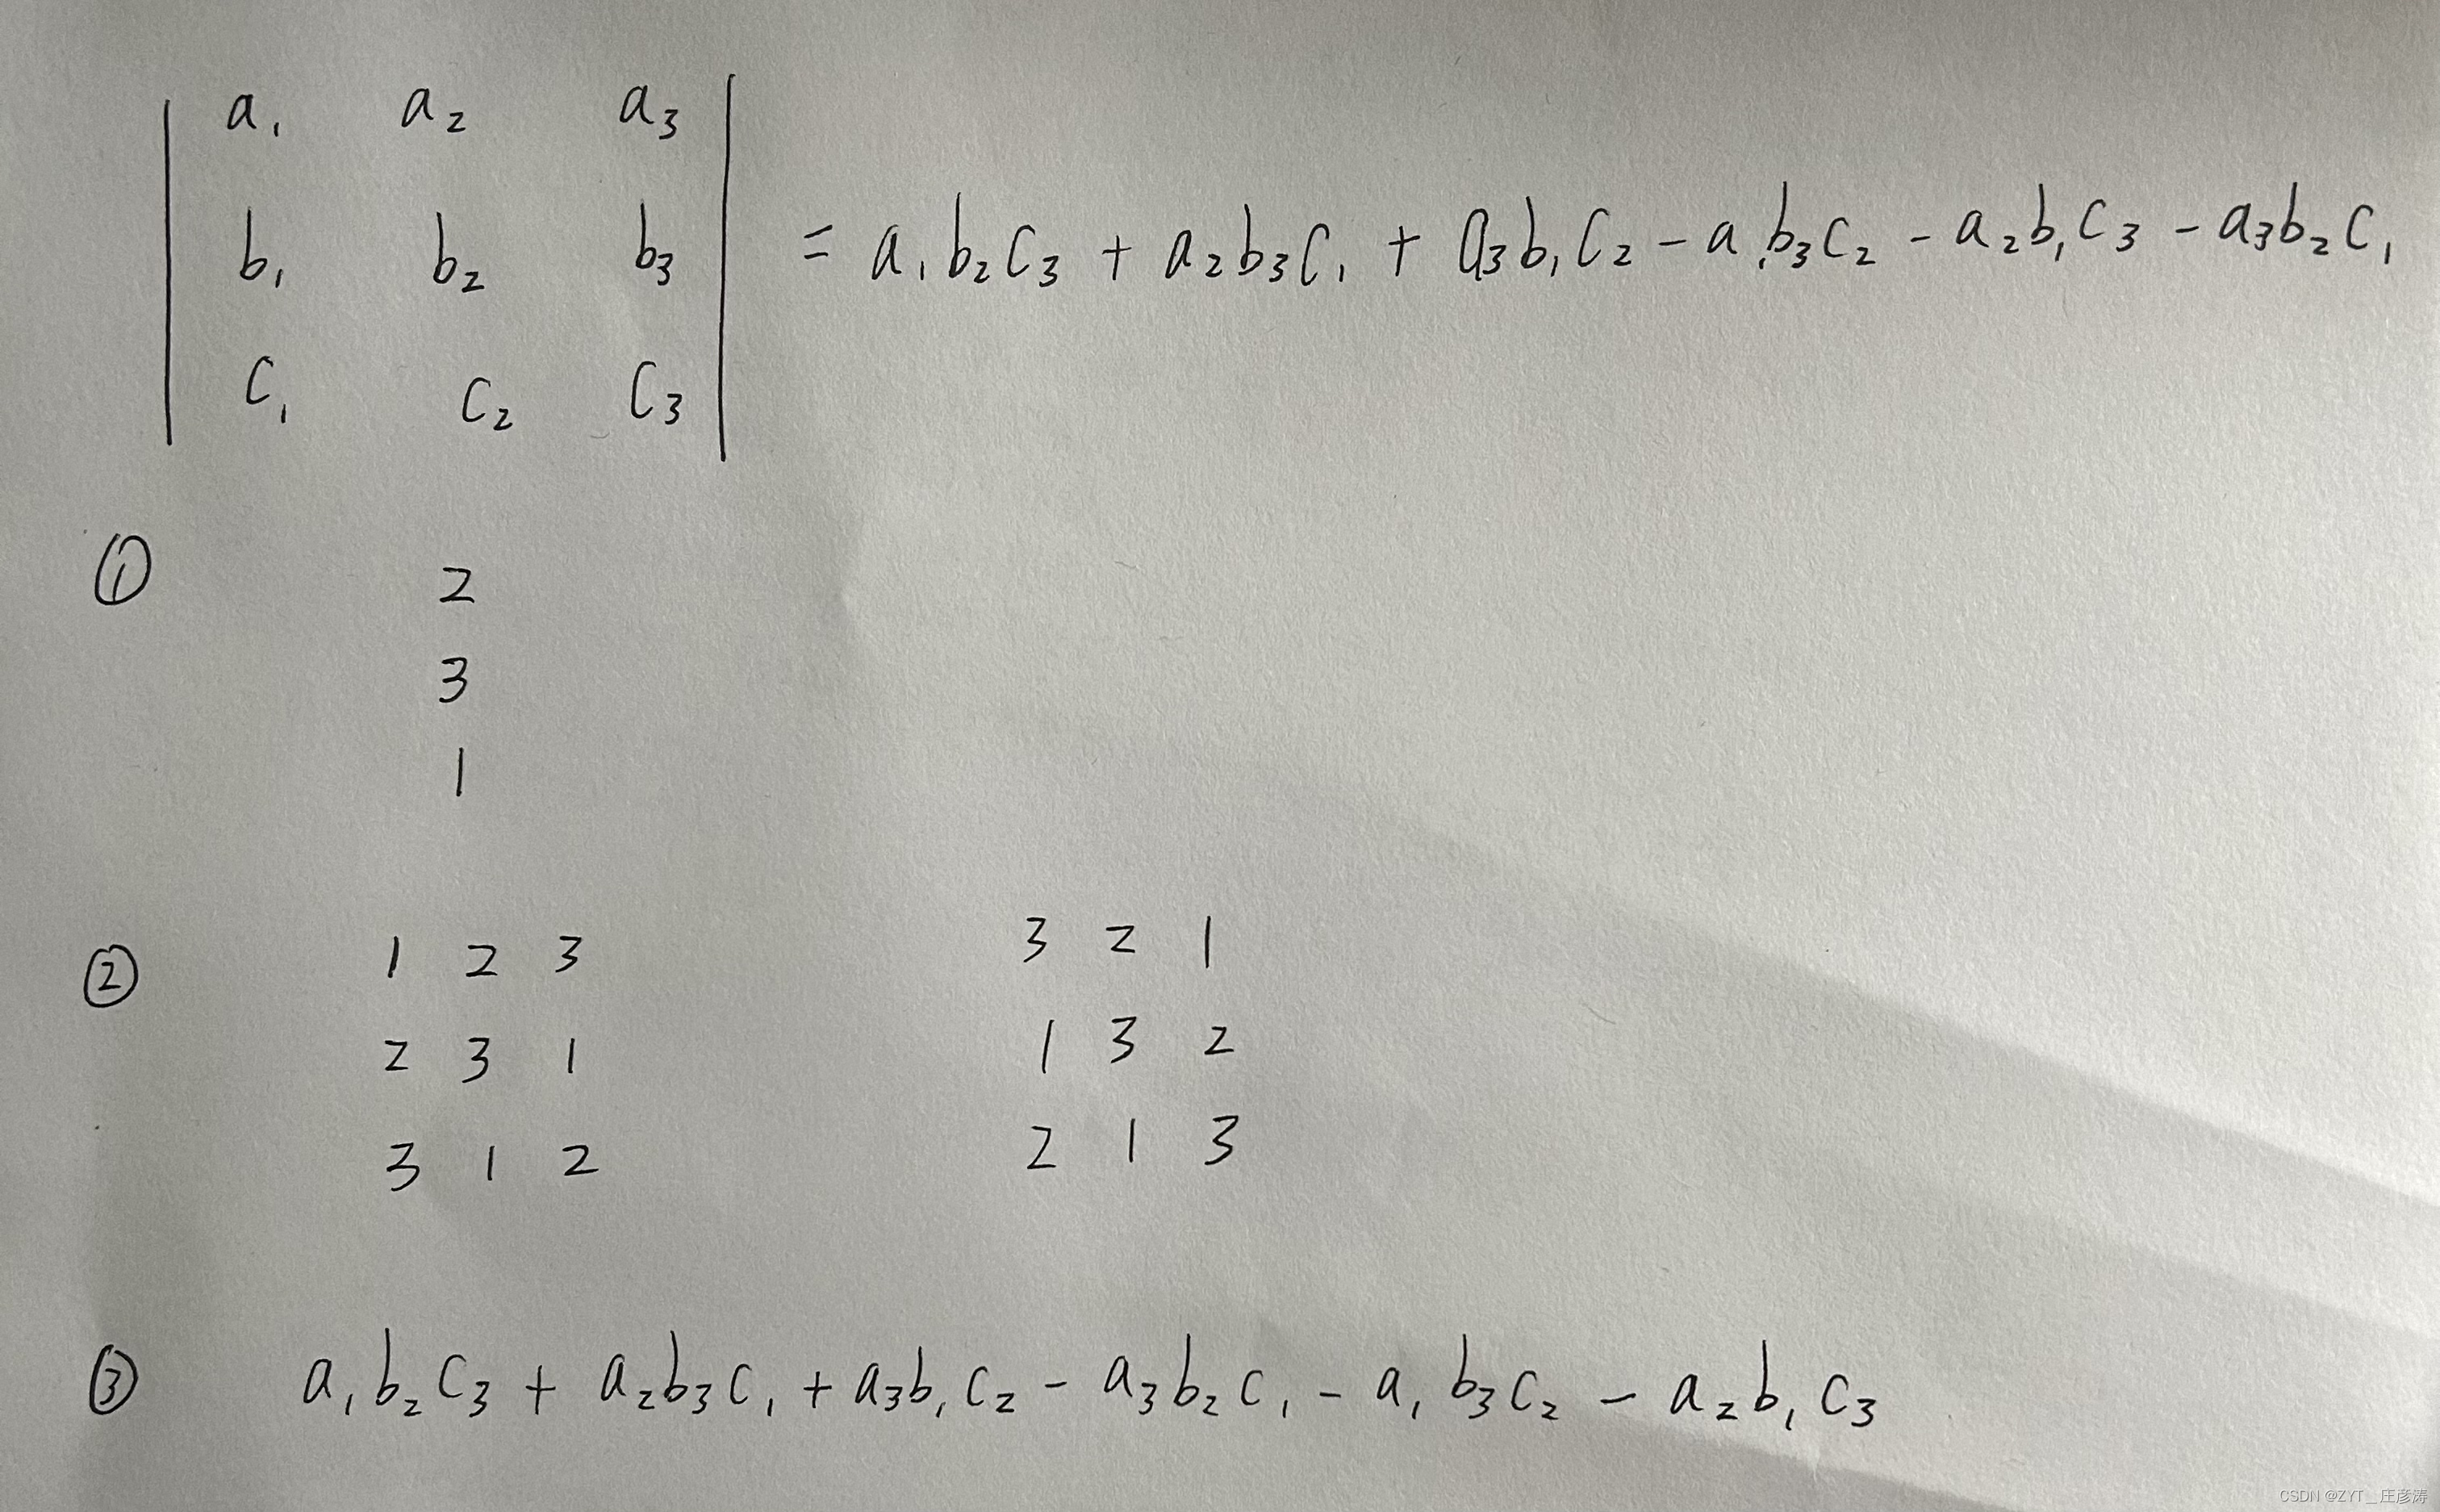 a₁ a₂ a₃
b₁ b₂ b₃ = a₁b₂c₃ + a₂b₃c₁ + a₃b₁c₂ - a₁b₃c₂ - a₂b₁c₃ - a₃b₂c₁
c₁ c₂ c₃
①
2
3
1
②
1 2 3
2 3 1
3 1 2
3 2 1
1 3 2
2 1 3
③ a₁b₂c₃ + a₂b₃c₁ + a₃b₁c₂ - a₃b₂c₁ - a₁b₃c₂ - a₂b₁c₃
CSDN @ZYT＿庄彦涛